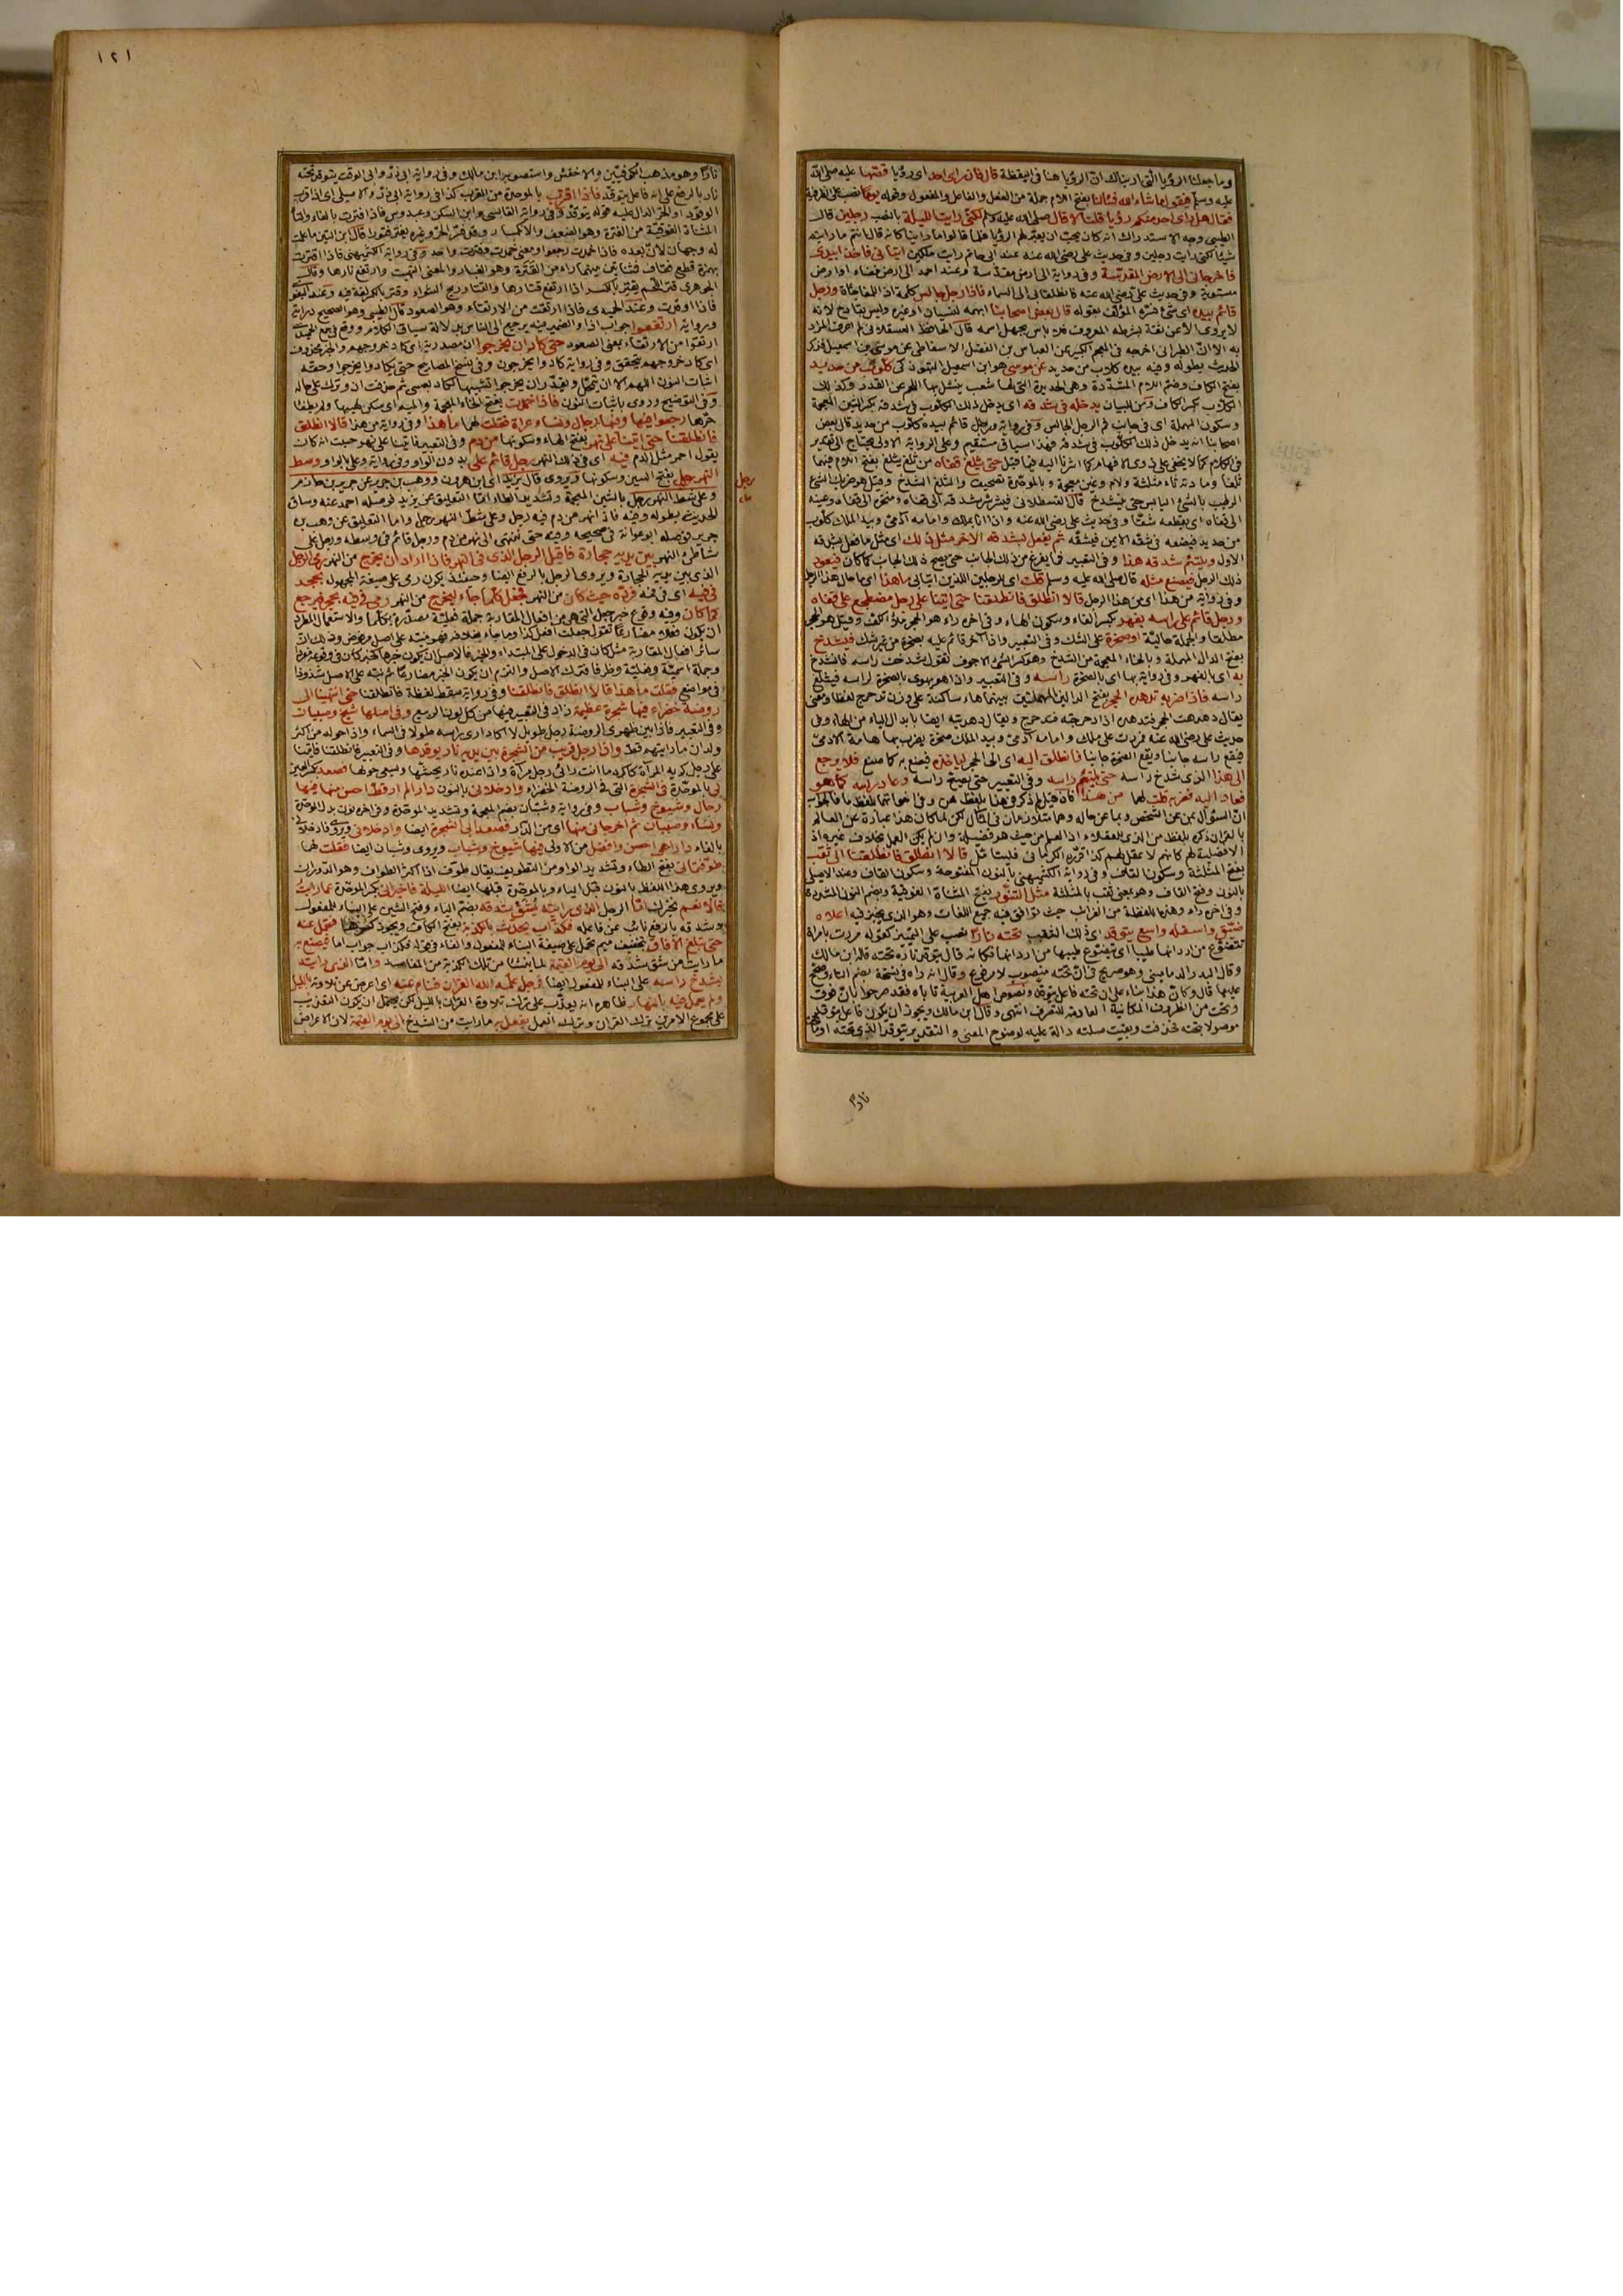 وما جعلنا الرؤيا التي اريناك ان الرؤيا هنا في اليقظة قال فان راى احد اى رؤيا قصّها عليه صلى الله
عليه وسلم فيقول ما شاء الله فسألنا بفتح اللام جملة من الفعل والفاعل والمفعول وقوله يوما نصب على الظرفية
فقال هل راى احد منكم رؤيا قلنا لا قال صلى الله عليه وسلم لكنّى رايت الليلة بالنصب رجلين قال
الطيبى وجه الاستدراك انه كان يحب ان يعبّر لهم الرؤيا فلما قالوا ما راينا كانه قال انتم ما رايتم
شيئا لكنى رايت رجلين وفى حديث على رضى الله عنه عند ابى حاتم رايت ملكين اتيانى فاخذا بيدى
فاخرجانى الى الارض المقدسة وفى رواية الى ارض مقدسة وعند احمد الى ارض فضاء او ارض
مستوية وفى حديث على رضى الله عنه فانطلقا بى الى السماء فاذا رجل جالس كلمة اذا للمفاجاة ورجل
قائم بيده اى شئ فسّره المؤلف بقوله قال بعض اصحابنا ابهمه لنسيان او غيره وليس بقادح لانه
لا يروى الا عن ثقة بشرطه المعروف فلا باس بجهل اسمه قال الحافظ العسقلانى لم اعرف المراد
به الا ان الطبرانى اخرجه فى المعجم الكبير عن العباس بن الفضل الاسفاطى عن موسى بن اسمعيل فذكر
الحديث بطوله وفيه بيده كلاب من حديد عن موسى هو ابن اسمعيل التبوذكى كلّوب من حديد
بفتح الكاف وضم اللام المشددة وهى الحديدة التى لها شعب ينشل بها اللحم عن القدر وكذلك
الكلاب بكسر الكاف ومن للبيان يدخله فى شدقه اى يدخل ذلك الكلوب فى شدقه بكسر الشين المعجمة
وسكون المهملة اى فى جانب فم الرجل الجالس وفى رواية ورجل قائم بيده كلوب من حديد قال بعض
اصحابنا انه يدخل ذلك الكلوب فى شدقه فهذا سياق مستقيم وعلى الرواية الاولى يحتاج الى تقدير
فى الكلام كما لا يخفى على ذوى الافهام كما اشرنا اليه فيما قيل حتى يثلغ قفاه من ثلغ يثلغ بفتح اللام فيهما
ثلغا ومادته ثاء مثلثة ولام وغين معجمة وبالموحدة تصحيف والثلغ الشدخ وقيل هو ضربك الشئ
الرطب بالشئ اليابس حتى ينشدخ قال القسطلانى فيشرشر شدقه الى قفاه ومنخره الى قفاه وعينه
الى قفاه اى يقطعه شقا وفى حديث على رضى الله عنه واذا انا بملك وامامه آدمى وبيد الملك كلوب
من حديد فيضعه فى شقه الايمن فيشقه ثم يفعل بشدقه الآخر مثل ذلك اى مثل ما فعل بشدقه
الاول ويلتئم شدقه هذا وفى التعبير فما يفرغ من ذلك الجانب حتى يصح ذلك الجانب كما كان فيعود
ذلك الرجل فيصنع مثله قال صلى الله عليه وسلم قلت اى للرجلين اللذين اتيانى ما هذا اى ما حال هذا الرجل
وفى رواية من هذا اى من هذا الرجل قالا انطلق فانطلقنا حتى اتينا على رجل مضطجع على قفاه
ورجل قائم على راسه بفهر بكسر الفاء وسكون الهاء وفى آخره راء هو الحجر ملأ الكف وقيل هو الحجر
مطلقا والجملة حالية او صخرة على الشك وفى التعبير واذا آخر قائم عليه بصخرة من غير شك فيشدخ
بفتح الدال المهملة وبالخاء المعجمة من الشدخ وهو كسر الشئ الاجوف تقول شدخت راسه فانشدخ
به اى بالفهر وفى رواية بها اى بالصخرة راسه وفى التعبير واذا هو يهوى بالصخرة لراسه فيثلغ
راسه فاذا ضربه تدهده الحجر بفتح الدالين المهملتين بينهما هاء ساكنة على وزن تدحرج لفظا ومعنى
يقال دهدهت الحجر فتدهده اذا دحرجته فتدحرج ويقال دهديته ايضا بابدال الياء من الهاء وفى
حديث على رضى الله عنه فمررت على ملك وامامه آدمى وبيد الملك صخرة يضرب بها هامة الآدمى
فيقع راسه جانبا وتقع الصخرة جانبا فانطلق اليه اى الى الحجر لياخذه فيصنع به كما صنع فلا يرجع
الى هذا الذى شدخ راسه حتى يلتئم راسه وفى التعبير حتى يصح راسه وعاد راسه كما هو
فعاد اليه فضربه قلت لهما من هذا فان قيل لم ذكر فى هذا بلفظ من وفى اخواتها بلفظ ما فالجواب
ان السؤال بمن عن الشخص وبما عن حاله وهما متلازمان فى المآل لكن لما كان هذا عبارة عن العالم
بالقرآن ذكره بلفظ من الذى للعقلاء اذ العلم من حيث هو فضيلة وان لم يكن العمل بخلاف غيره اذ
لا فضيلة لهم كانهم لا عقل لهم كذا قرره الكرمانى فليتامل قالا انطلق فانطلقنا الى ثقب
بفتح المثلثة وسكون القاف وفى رواية الكشميهنى بالنون المفتوحة وسكون القاف وعند الاصيلى
بالنون وفتح القاف وهو بمعنى ثقب بالمثلثة مثل التنّور بفتح المثناة الفوقية وبضم النون المشددة
وفى آخره راء وهذه اللفظة من الغرائب حيث توافق فيه جميع اللغات وهو الذى يخبز فيه اعلاه
ضيّق واسفله واسع يتوقد اى ذلك الثقب تحته نارا نصب على التمييز كقوله مررت بامراة
تتضوع من اردانها طيبا اى يتضوع طيبها من اردانها فكانه قال يتوقد ناره تحته قاله ابن مالك
وقال البدر الدمامينى وهو صريح فى ان تحته منصوب لا مرفوع وقال انه راه فى نسخة بضم التاء وصحح
عليها قال وكان هذا بناء على ان تحته فاعل يتوقد ونصوص اهل العربية تاباه فقد صرحوا بان فوق
وتحت من الظروف المكانية العادمة للتصرف انتهى وقال ابن مالك ويجوز ان يكون فاعل يتوقد
موصولا بتحته فحذفت وبقيت صلته دالة عليه لوضوح المعنى والتقدير يتوقد الذى تحته او ما تحته
نارا
١٢١
نارا وهو مذهب الكوفيين والاخفش واستصوبه ابن مالك وفى رواية ابى ذر وابى الوقت يتوقد تحته
نار بالرفع على انه فاعل يتوقد فاذا اقترب بالموحدة من القرب كذا فى رواية ابى ذر والاصيلى اى اذا قرب
الوقود او الحر الدال عليه قوله يتوقد وفى رواية القابسى وابن السكن وعبدوس فاذا فترت بالفاء والتاء
المثناة الفوقية من الفترة وهو الضعف والانكسار وقد فتر الحر وغيره يفتر فتورا قال ابن التين ما علمت
له وجها لان بعده فاذا خمدت رجعوا ومعنى خمدت وفترت واحد وفى رواية الكشميهنى فاذا اقترت
بهمزة قطع فقاف فمثناتين بينهما راء من القترة وهو الغبار والمعنى التهبت وارتفع نارها وقال
الجوهرى قتر اللحم يقتر بالكسر اذا ارتفع قتارها والقتار ريح الشواء وقتر بالكسر لغة فيه وعند البغوى
فاذا اوقدت وعند الحميدى فاذا ارتقت من الارتقاء وهو الصعود قال الطيبى وهو الصحيح دراية
ورواية ارتفعوا جواب اذا والضمير فيه يرجع الى الناس بدلالة سياق الكلام ووقع فى جمع الحميدى
ارتقوا من الارتقاء بمعنى الصعود حتى كاد ان يخرجوا ان مصدرية اى كاد خروجهم والخبر محذوف
اى كاد خروجهم يتحقق وفى رواية كادوا يخرجون وفى نسخ المصابيح حتى يكادوا يخرجوا وحقه
اثبات النون اللهم الا ان يتمحل ويقدر ان يخرجوا تشبيها لكاد بعسى ثم حذفت ان وترك على حاله
وفى التوضيح وروى باثبات النون فاذا خمدت بفتح الخاء المعجمة والميم اى سكن لهيبها ولم يطفأ
حرّها رجعوا فيها وفيها رجال ونساء عراة فقلت لهما ما هذا وفى رواية من هذا قالا انطلق
فانطلقنا حتى اتينا على نهر بفتح الهاء وسكونها من دم وفى التعبير فاتينا على نهر حسبت انه كان
يقول احمر مثل الدم فيه اى فى ذلك النهر رجل قائم على بدون الواو وفى رواية وعلى بالواو وسط
النهر رجل بفتح السين وسكونها ويروى قال يزيد اى ابن هرون ووهب بن جرير عن جرير بن حازم
رجل
وعلى شط النهر رجل بالشين المعجمة وتشديد الطاء اما التعليق عن يزيد فوصله احمد عنه وساق
الحديث بطوله وفيه فاذا نهر من دم فيه رجل وعلى شط النهر رجل واما التعليق عن وهب بن
جرير فوصله ابو عوانة فى صحيحه وفيه حتى ننتهى الى نهر من دم ورجل قائم فى وسطه ورجل على
شاطئ النهر بين يديه حجارة فاقبل الرجل الذى فى النهر فاذا اراد ان يخرج من النهر رمى الرجل
الذى بين يديه الحجارة ويروى الرجل بالرفع ايضا وحينئذ يكون رمى على صيغة المجهول بحجر
فى فيه اى فى فمه فردّه حيث كان من النهر فجعل كلما جاء ليخرج من النهر رمى فى فيه بحجر فيرجع
كما كان وفيه وقوع خبر جعل التى هى من افعال المقاربة جملة فعلية مصدرة بكلما والاستعمال المطرد
ان يكون فعلا مضارعا تقول جعلت افعل كذا وما جاء بخلافه فهو منبه على اصل مرفوض وذلك ان
سائر افعال المقاربة مثل كان فى الدخول على المبتداء والخبر فالاصل ان يكون خبرها كخبر كان فى وقوعه مفردا
وجملة اسمية وفعلية وظرفا فترك الاصل والتزم ان يكون الخبر مضارعا ثم نبّه على الاصل شذوذا
فى مواضع فقلت ما هذا قالا انطلق فانطلقنا وفى رواية سقط لفظة فانطلقنا حتى انتهينا الى
روضة خضراء فيها شجرة عظيمة زاد فى التعبير فيها من كل لون الربيع وفى اصلها شيخ وصبيان
وفى التعبير فاذا بين ظهرى الروضة رجل طويل لا اكاد ارى راسه طولا فى السماء واذا حوله من اكثر
ولدان ما رايتهم قط واذا رجل قريب من الشجرة بين يديه نار يوقدها وفى التعبير فانطلقنا فاتينا
على رجل كريه المرآة كاكره ما انت رائى رجلا مرآة واذا عنده نار يحشّها ويسعى حولها فصعدا بكسر العين
بى بالموحدة فى الشجرة التى فى الروضة الخضراء وادخلانى بالنون دارا لم ار قط احسن منها فيها
رجال وشيوخ وشباب وفى رواية وشبّان بضم المعجمة وتشديد الموحدة وفى آخره نون بدل الموحدة
ونساء وصبيان ثم اخرجانى منها اى من الدار فصعدا بى الشجرة ايضا وادخلانى ويروى فادخلانى
بالفاء دارا هى احسن وافضل من الاولى فيها شيوخ وشباب ويروى وشبان ايضا فقلت لهما
طوّفتمانى بفتح الطاء وتشديد الواو من التطويف يقال طوّف اذا اكثر الطواف وهو الدوران
ويروى هذا اللفظ بالنون قبل الياء وبالموحدة قبلها ايضا الليلة فاخبرانى بكسر الموحدة عما رايت
قالا نعم نخبرك امّا الرجل الذى رايته يُشَقّ شدقه بضم الياء وفتح الشين على البناء للمفعول
وشدقه بالرفع نائب عن فاعله فكذّاب يحدّث بالكذبة بفتح الكاف ويجوز كسرها فتحمل عنه
حتى تبلغ الآفاق بتخفيف ميم تحمل على صيغة البناء للمفعول والفاء فى قوله فكذاب جواب اما فيصنع به
ما رايت من شق شدقه الى يوم القيمة لما ينشأ من تلك الكذبة من المفاسد وامّا الذى رايته
يشدخ راسه على البناء للمفعول ايضا فرجل علّمه الله القرآن فنام عنه اى اعرض عن تلاوته بالليل
ولم يعمل فيه بالنهار ظاهره انه يعذّب على ترك تلاوة القرآن بالليل لكن يحتمل ان يكون التعذيب
على مجموع الامرين ترك القرآن وترك العمل يفعل به ما رايت من الشدخ الى يوم القيمة لان الاعراض